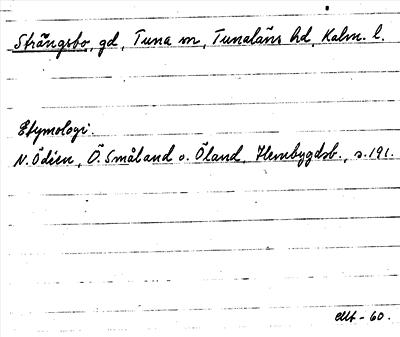 Strängsbo, gd, Tuna sn, Tunaläns hd, Kalm. l.
Etymologi
N. Ödéen, Ö. Småland o. Öland, Hembygdsb., s. 191.
- 60.